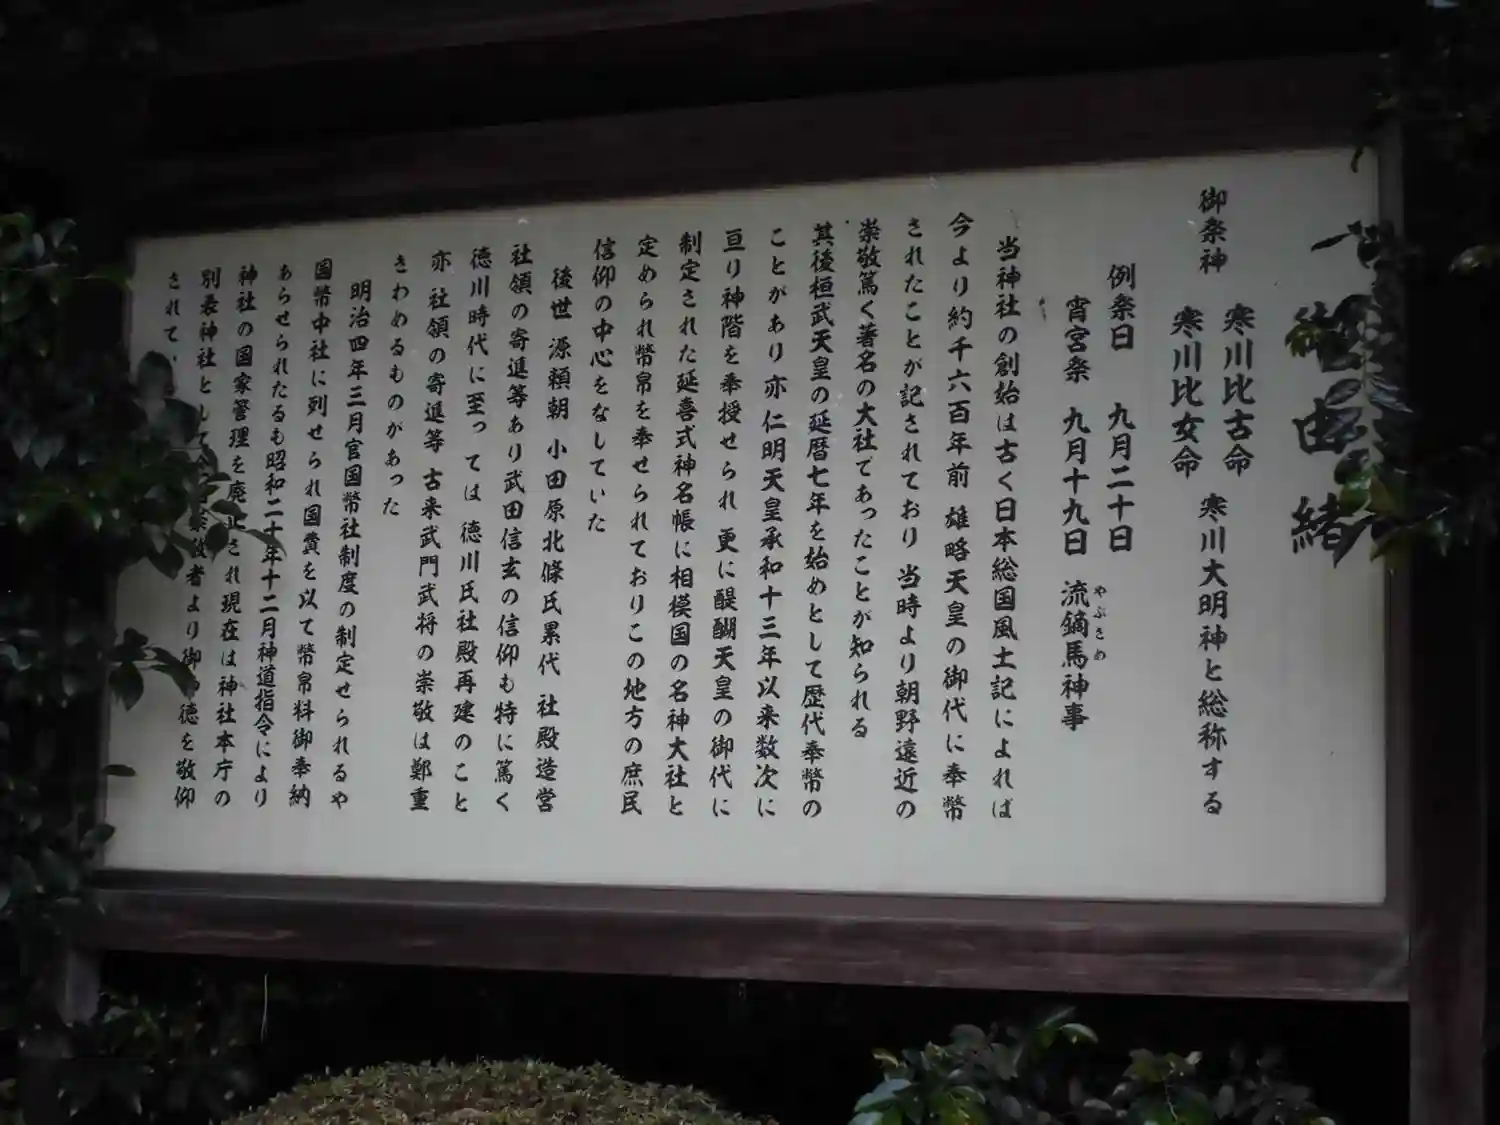 御由緒
御祭神
寒川比古命
寒川比女命
寒川大明神と総称する
例祭日 九月二十日
宵宮祭 九月十九日 流鏑馬神事
やぶさめ
当神社の創始は古く日本総国風土記によれば
今より約千六百年前 雄略天皇の御代に奉幣
されたことが記されており 当時より朝野遠近の
崇敬篤く著名の大社であったことが知られる
其後桓武天皇の延暦七年を始めとして歴代奉幣の
ことがあり 亦 仁明天皇承和十三年以来数次に
亘り神階を奉授せられ 更に醍醐天皇の御代に
制定された延喜式神名帳に相模国の名神大社と
定められ幣帛を奉せられておりこの地方の庶民
信仰の中心をなしていた
後世 源頼朝 小田原北條氏累代 社殿造営
社領の寄進等あり武田信玄の信仰も特に篤く
徳川時代に至っては 徳川氏社殿再建のこと
亦 社領の寄進等 古来武門武将の崇敬は鄭重
きわめるものがあった
明治四年三月官国幣社制度の制定せられるや
国幣中社に列せられ国費を以て幣帛料御奉納
あらせられたるも昭和二十年十二月神道指令により
神社の国家管理を廃止され現在は神社本庁の
別表神社として 崇敬者より御 徳を敬仰
されて